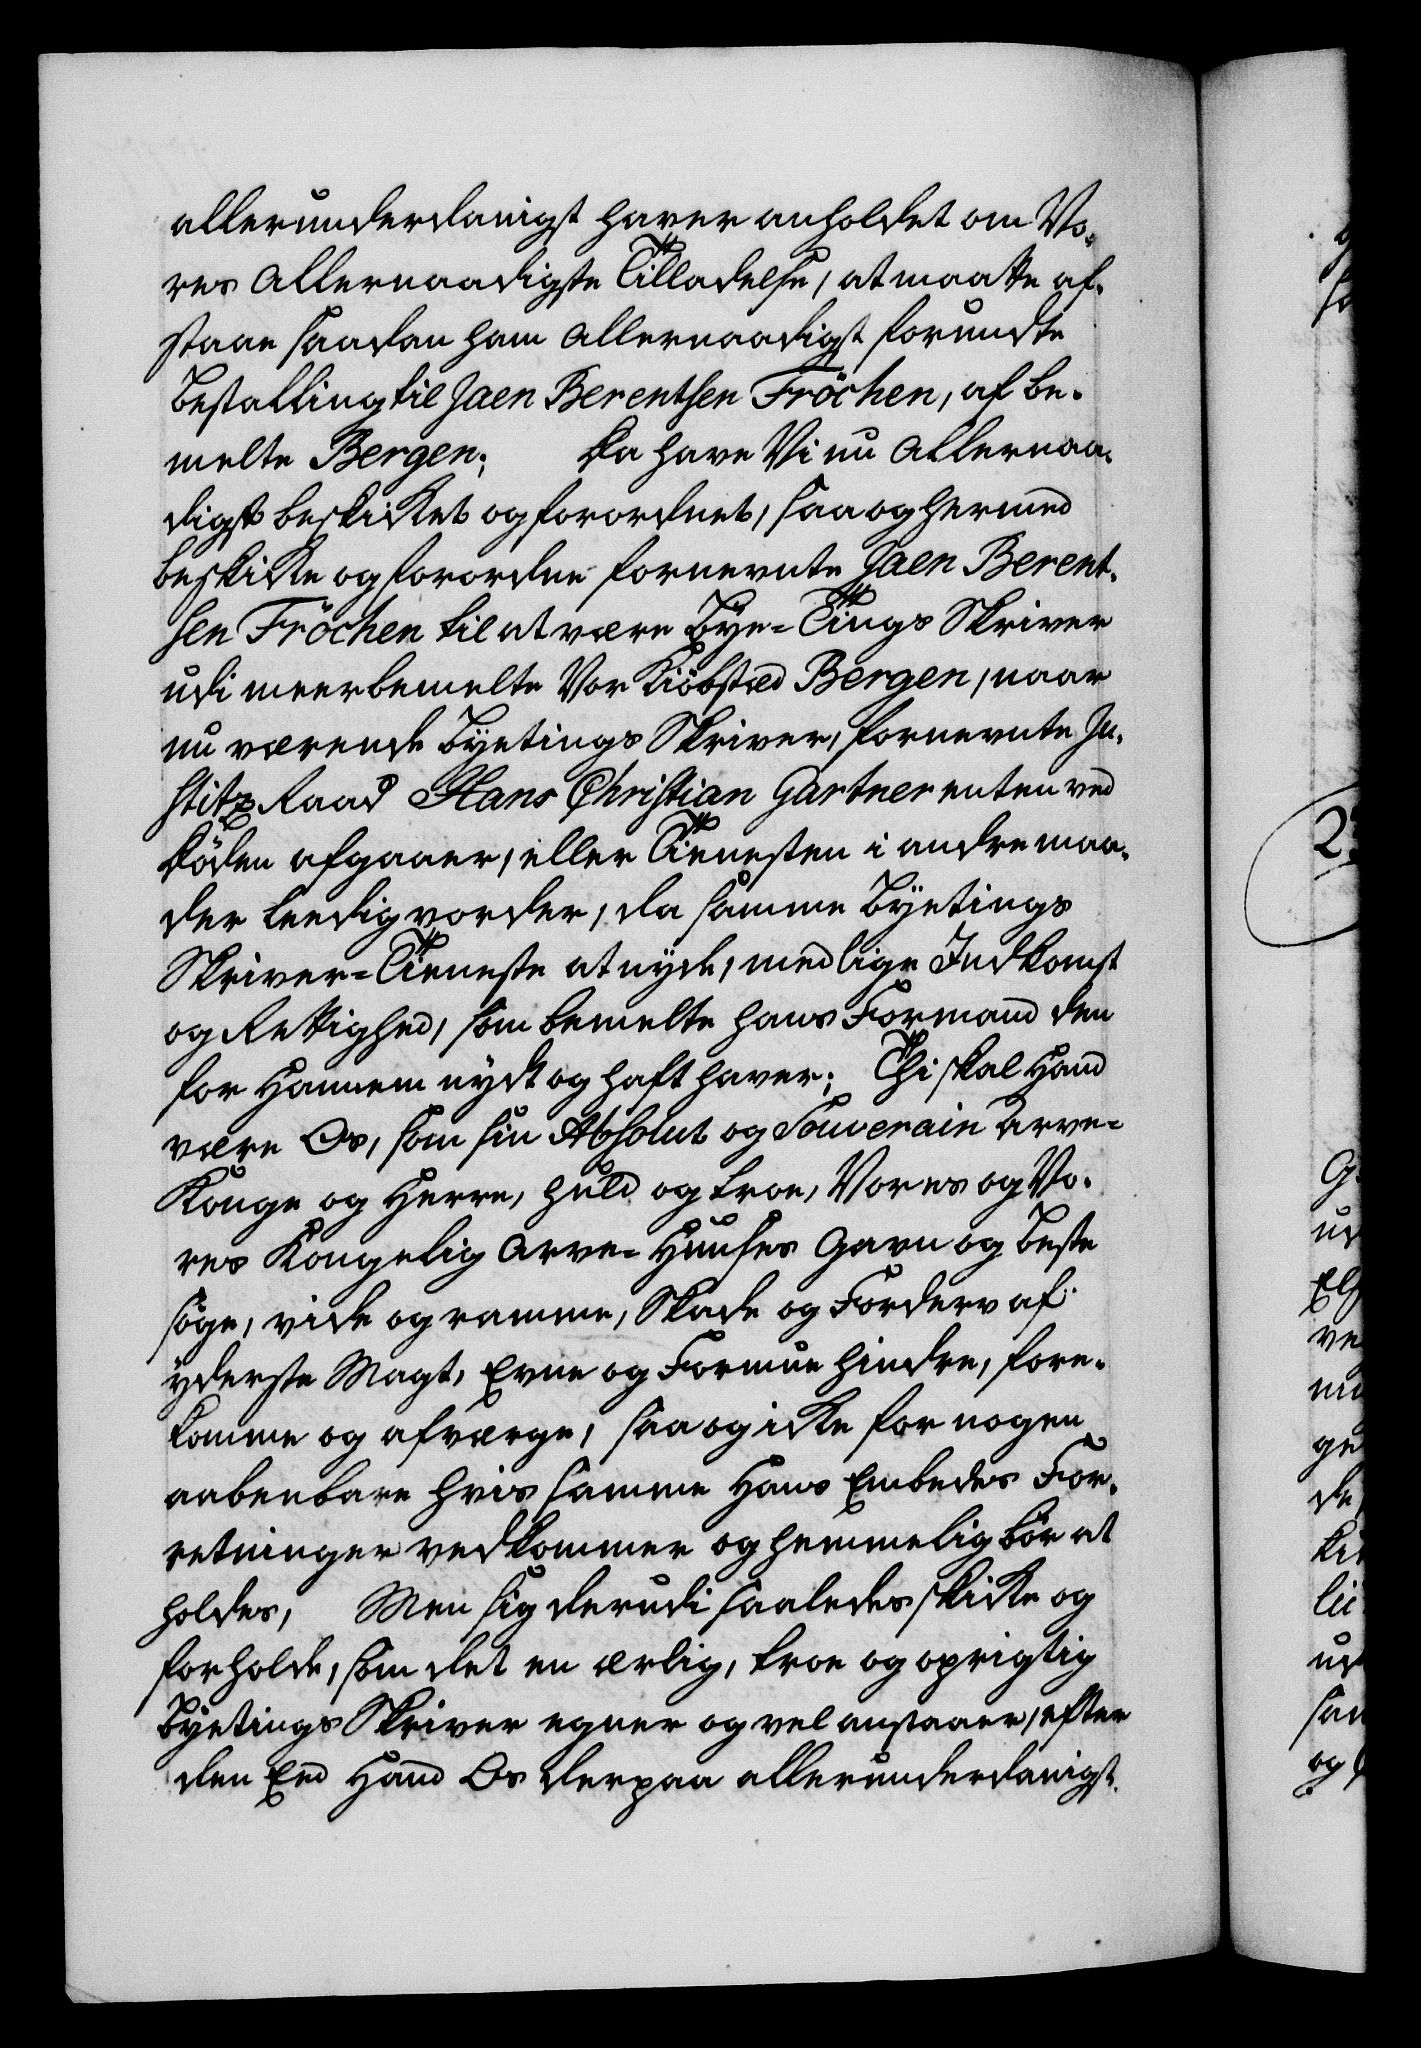 allerunderdanigst haver anholdet om Vo-
res Allernaadigste Tilladelse, at maatte af-
staae saadan ham Allernaadigst forundte
Bestalling til Jaen Berentsen Fröchen, af be-
melte Bergen; Da have Vi nu Allernaa-
digst beskikket og forordnet, saa og hermed
beskikke og forordne fornevnte Jaen Berent-
sen Fröchen til at være Bye-Tings Skriver
udi meerbemelte Vor Kiöbsted Bergen, naar
nu værende Byetings Skriver, fornevnte Ju-
stitz Raad Hans Christian Gartner enten ved
Döden afgaaer, eller Tienesten i andre maa-
der leedig vorder, da samme Byetings
Skriver-Tieneste at nyde, med lige Indkomst
og Rettighed, som bemelte hans Formand den
for Hannem nydt og haft haver; Thi skal Hand
være Os, som sin Absolut og Souverain Arve-
Konge og Herre, huld og troe, Vores og Vo-
res Kongelig Arve-Huuses Gavn og beste
söge, vide og ramme, Skade og Forderv af
yderste Magt, Evne og Formue hindre, fore-
komme og afværge, saa og icke for nogen
aabenbare hvis samme Hans Embedes For-
retninger vedkommer og hemmelig bör at
holdes, Men sig derudi saaledes skicke og
forholde, som det en ærlig, troe og oprigtig
Byetings Skriver egner og vel anstaaer, efter
den Eed Hand Os derpaa allerunderdanigst